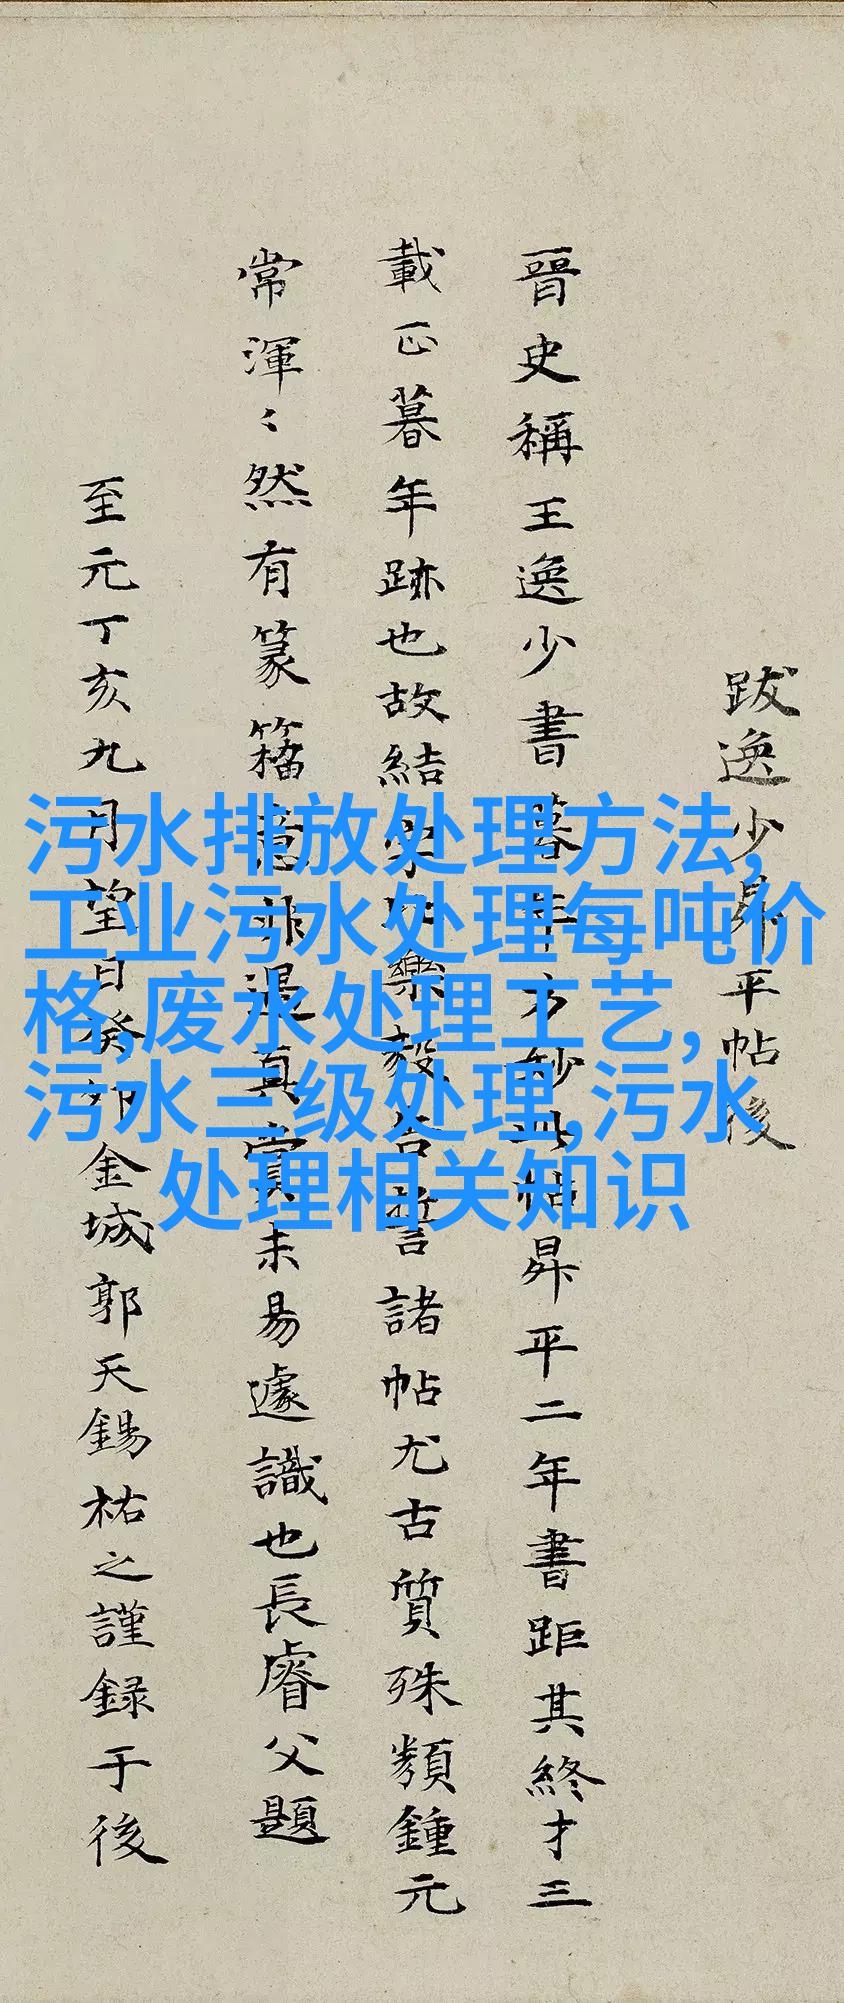 跋逸少昇平帖後
晉史稱王逸少書暮年方妙此帖昇平二年書距其終才三
載正暮年跡也故結字比樂毅告誓諸帖尤古質殊類鍾元
常渾〻然有篆籀意非遇真賞未易遽識也長睿父題
至元丁亥九月望日癸卯金城郭天錫祐之謹録于後
污水排放处理方法,
工业污水处理每吨价
格,废水处理工艺,
污水三级处理,污水
处理相关知识